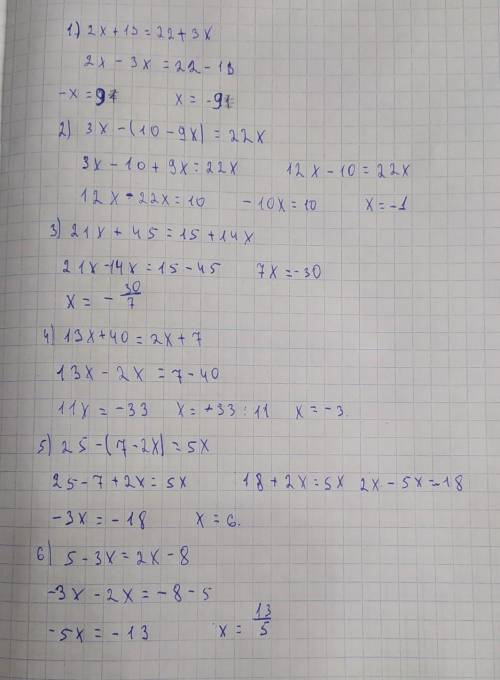 1.) 2x + 13 = 22 + 3x
2x - 3x = 22 - 13
-x = 9 x = -9
2) 3x - (10 - 9x) = 22x
3x - 10 + 9x = 22x 12x - 10 = 22x
12x - 22x = 10 -10x = 10 x = -1
3) 21x + 45 = 15 + 14x
21x - 14x = 15 - 45 7x = -30
x = - 30/7
4) 13x + 40 = 2x + 7
13x - 2x = 7 - 40
11x = -33 x = +33 : 11 x = -3.
5) 25 - (7 - 2x) = 5x
25 - 7 + 2x = 5x 18 + 2x = 5x 2x - 5x = -18
-3x = -18 x = 6.
6) 5 - 3x = 2x - 8
-3x - 2x = -8 - 5
-5x = -13 x = 13/5